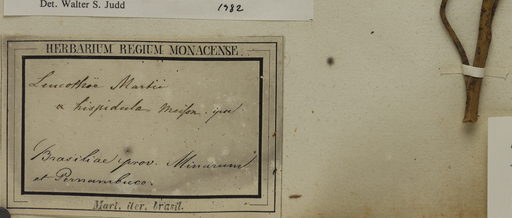 Det. Walter S. Judd 1982
HERBARIUM REGIUM MONACENSE.
Leucothöe Martii
α hispidula Meissn. ipse
Brasiliae prov. Minarum
et Pernambuco.
Mart. iter. brasil.